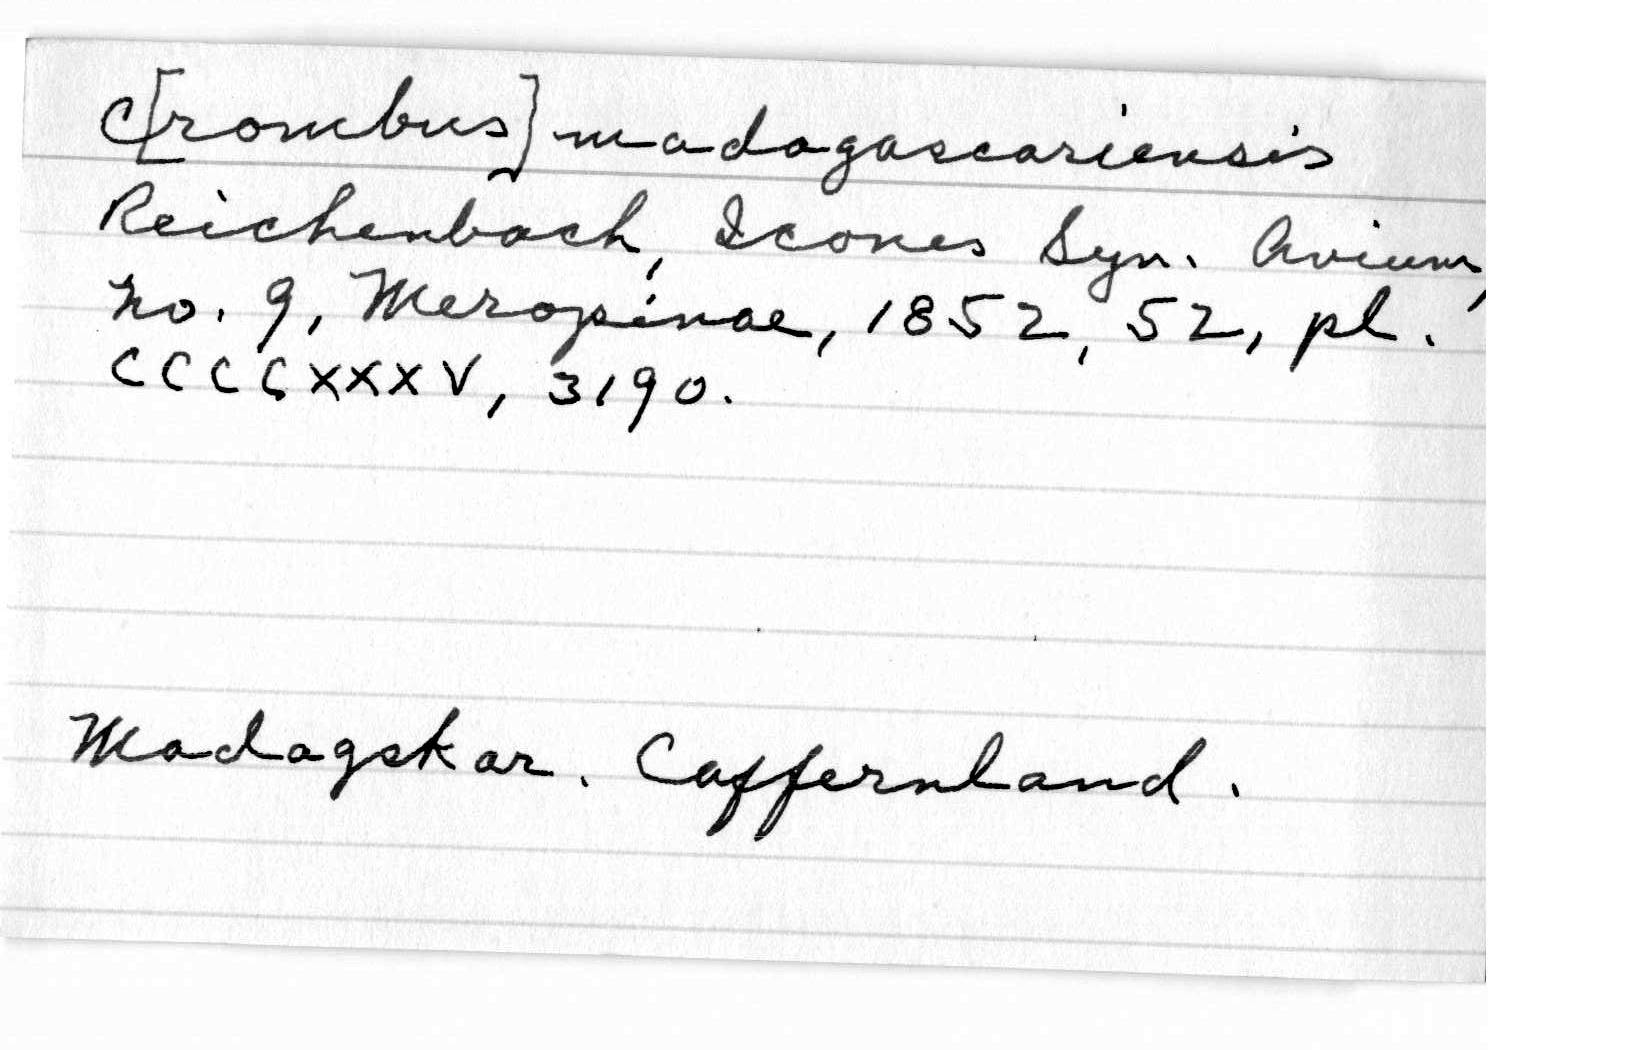 C[rombus] madagascariensis
Reichenbach, Icones Syn. Avium,
no. 9, Meropinae, 1852, 52, pl.
CCCCXXXV, 3190.
Madagskar. Caffernland.